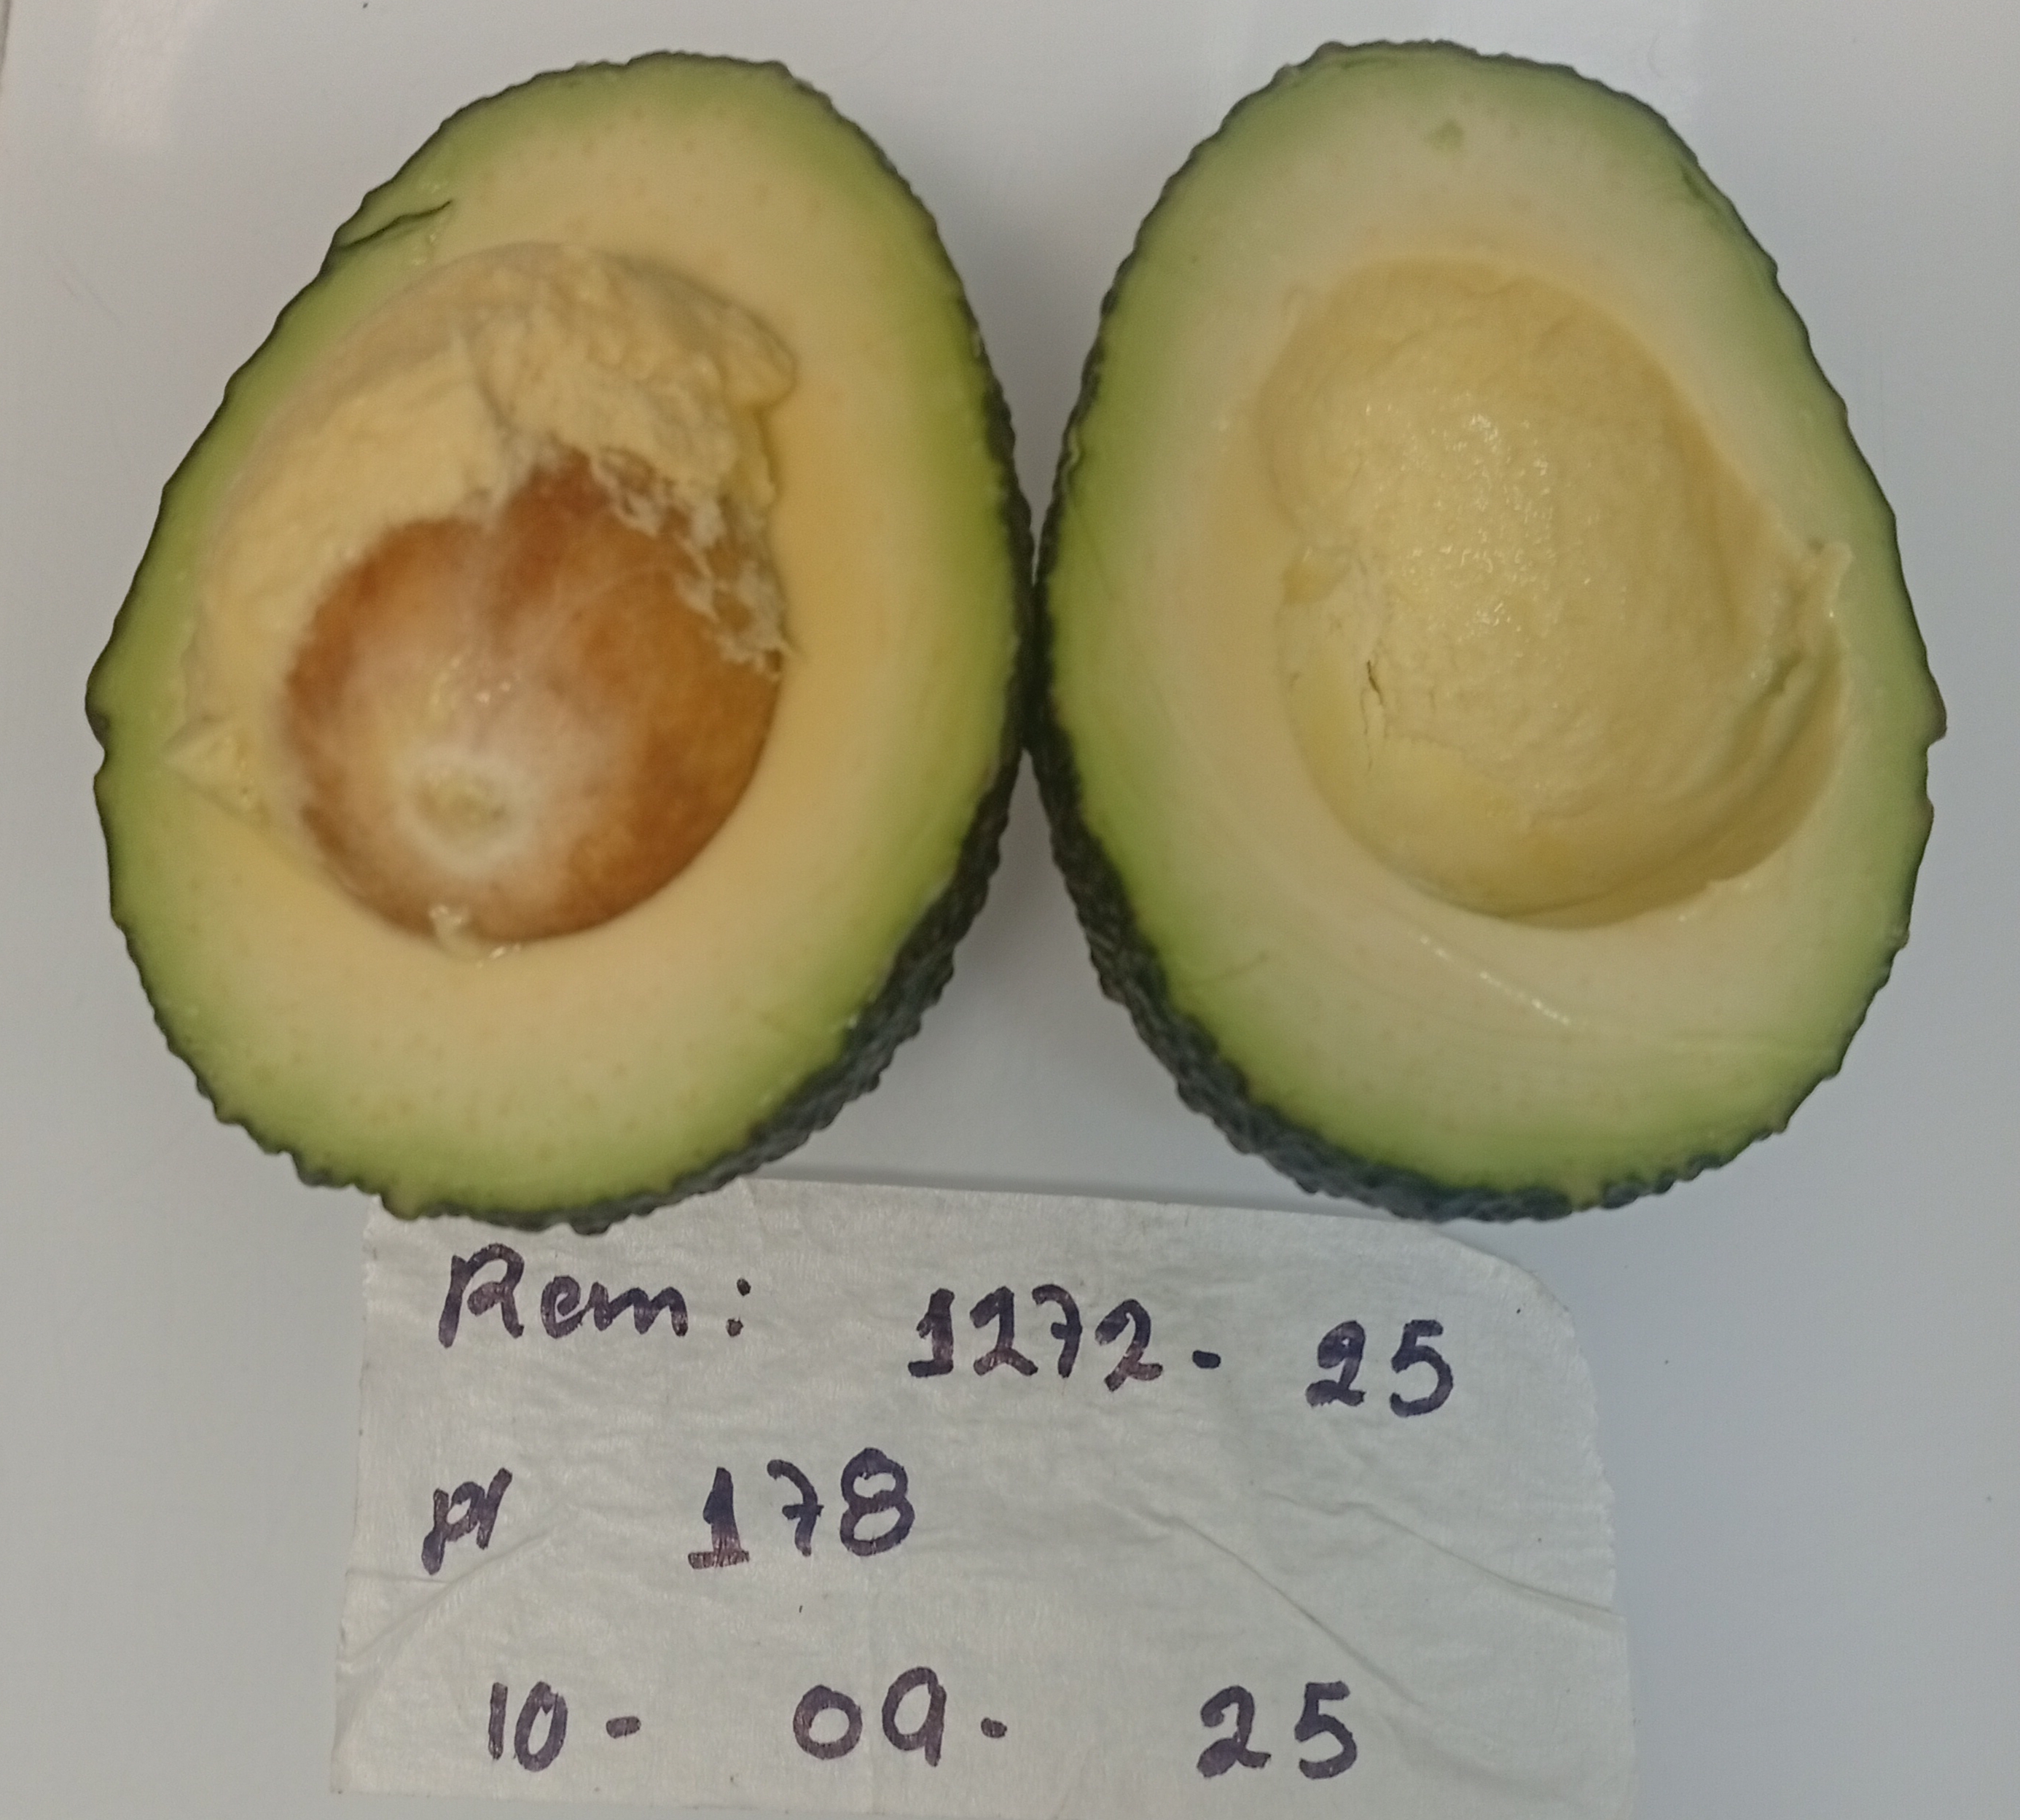 Rem: 1272-25
pl 178
10-09-25